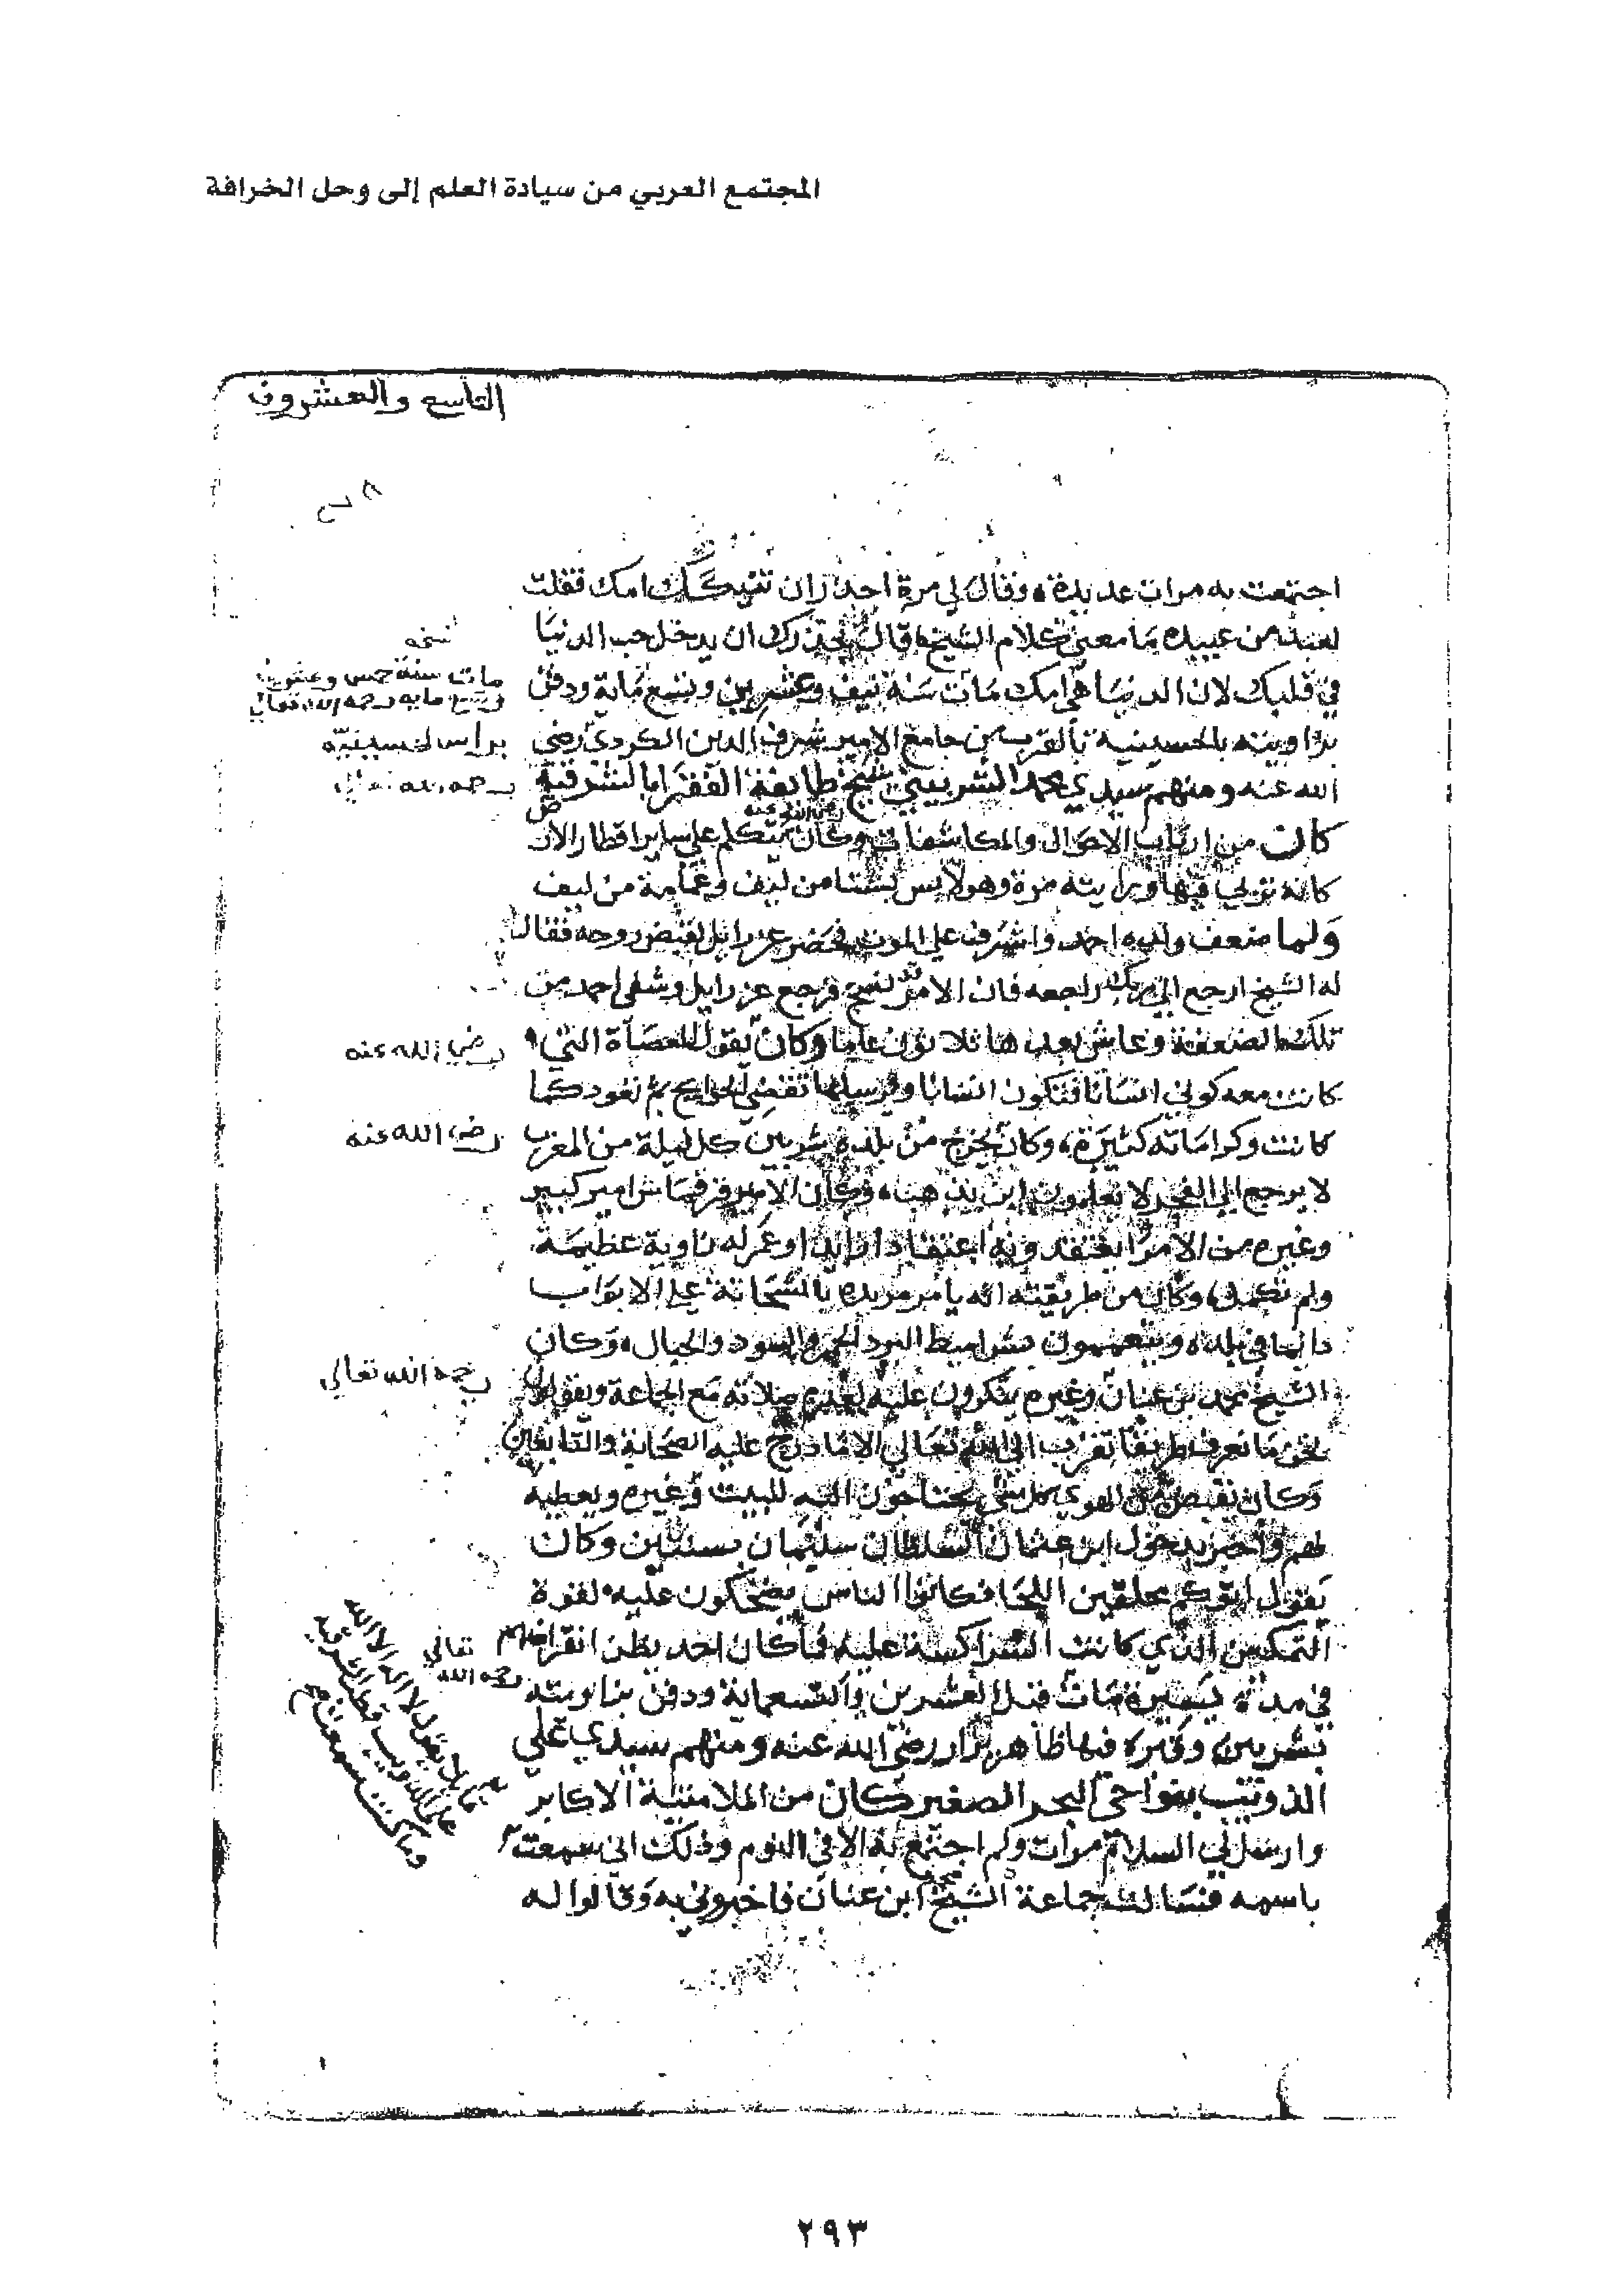 المجتمع العربي من سيادة العلم إلى وحل الخرافة
التاسع والعشرون
اجتمعت به مرات عديدة وقال لي مرة احذر ان تنيكك امك فقلت
لعبد من عبيده ما معنى كلام الشيخ قال يحذرك ان يدخل حب الدنيا
في قلبك لان الدنيا هي امك مات سنة نيف وعشرين وتسع ماية ودفن
بزاويته بالحسينية بالقرب من جامع الامير شرف الدين الكردي رضي
الله عنه ومنهم سيدي محمد الشربيني شيخ طايفة الفقرا بالشرقية
كان من ارباب الاحوال والمكاشفات وكان يتكلم على ساير اقطار الارض
كانه تربي فيها ورايته مرة وهو لابس بشتا من ليف وعمامة من ليف
ولما ضعف ولده احمد واشرف على الموت فحضر عزرائيل لقبض روحه فقال
له الشيخ ارجع الى ربك راجعه فان الامر نسخ فرجع عزرايل وشفي احمد من
تلك الضعفة وعاش بعدها ثلاثون عاما وكان يقول للعصاة التي
كانت معه كوني انسانا فتكون انسانا ويرسلها تقضي الحوايج ثم تعود كما
كانت وكراماته كثيرة وكان يخرج من بلده شربين كل ليلة من المغرب
لا يرجع الى الفجر لا يعلمون اين يذهب وكان الامير قرقماش امير كبير
وغيره من الامرا يعتقدونه اعتقادا زايدا وعمر له زاوية عظيمة
ولم تكمل وكان من طريقته انه يامر مريده بالشحاتة على الابواب
دايما في بلده ويتعممون بشراميط البرد الحمر والسود والحبال وكان
الشيخ محمد بن عنان وغيره ينكرون عليه لعدم صلاته مع الجماعة ويقولون
نحن ما نعرف طريقا تقرب الى الله تعالى الا ما درج عليه الصحابة والتابعين
وكان يقبض من الهوي كل شي يحتاجون اليه للبيت وغيره ويعطيه
لهم واخبر بدخول ابن عثمان السلطان سليمان بسنتين وكان
يقول اتوكم محلقين اللحا فكانوا الناس يضحكون عليه لقوة
التمكين الذي كانت الشراكسة عليه فما كان احد يظن انقراضهم
في مدة يسيرة مات قبل العشرين والتسعماية ودفن بزاويته
بشربين وقبره فيها ظاهر يزار رضي الله عنه ومنهم سيدي علي
الذويب بنواحي البحر الصغير كان من الملامتية الاكابر
وارسل لي السلام مرات ولم اجتمع به الا في النوم وذلك اني سمعت
باسمه فسالت جماعة الشيخ محمد ابن عنان فاخبروني به وقالوا له
نسخه
مات سنة خمس وعشرين
وتسع مايه رحمه الله تعالى
براس الحسينية
رحمه الله تعالى
رضي الله عنه
رضي الله عنه
رضي الله عنه
رحمه الله تعالى
تعالى
رحمه الله
٢٩٣